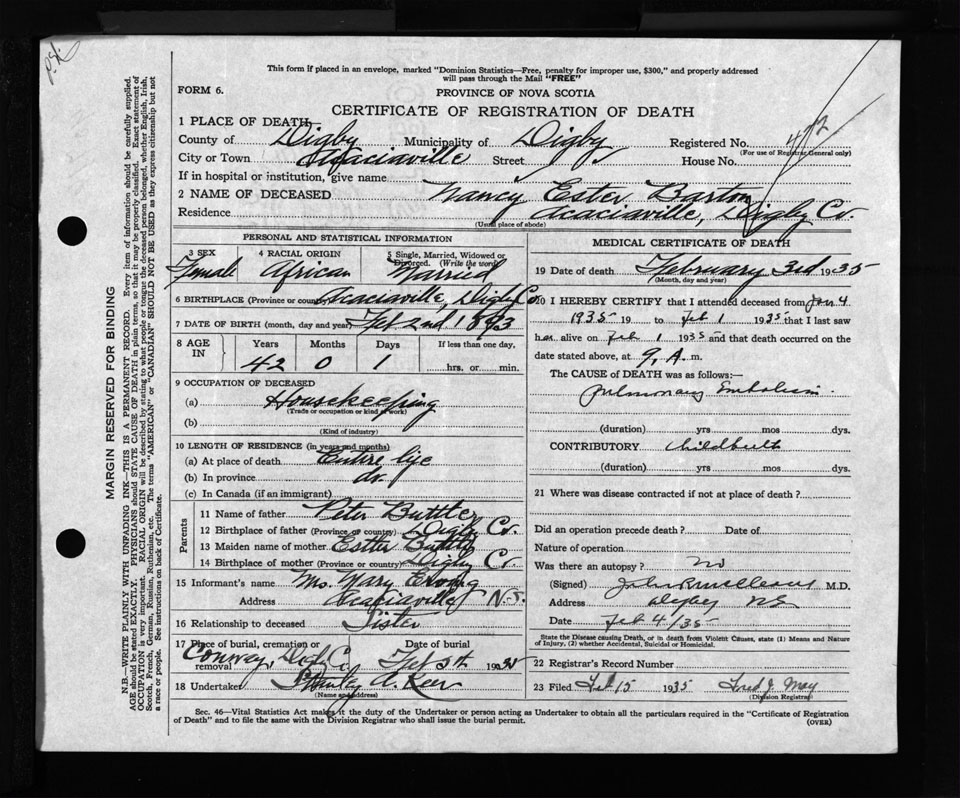 This form if placed in an envelope, marked "Dominion Statistics—Free, penalty for improper use, $300," and properly addressed
will pass through the Mail "FREE"
FORM 6.
PROVINCE OF NOVA SCOTIA
CERTIFICATE OF REGISTRATION OF DEATH
1 PLACE OF DEATH
County of Digby Municipality of Digby Registered No.
(For use of Registrar General only)
City or Town Acaciaville Street House No.
If in hospital or institution, give name
2 NAME OF DECEASED Nancy Ester Barton
Residence Acaciaville, Digby Co.
(Usual place of abode)
PERSONAL AND STATISTICAL INFORMATION
3 SEX 4 RACIAL ORIGIN 5 Single, Married, Widowed or
Divorced. (Write the word)
Female African Married
6 BIRTHPLACE (Province or country) Acaciaville, Digby Co.
7 DATE OF BIRTH (month, day and year) Feb 2nd 1893
8 AGE IN Years Months Days If less than one day,
42 0 1 hrs. or min.
9 OCCUPATION OF DECEASED
(a) Housekeeping
(Trade or occupation or kind of work)
(b)
(Kind of industry)
10 LENGTH OF RESIDENCE (in years and months)
(a) At place of death Entire life
(b) In province do.
(c) In Canada (if an immigrant)
Parents
11 Name of father Peter Buttler
12 Birthplace of father (Province or country) Digby Co.
13 Maiden name of mother Ester
14 Birthplace of mother (Province or country) Digby Co.
15 Informant's name Mrs. Mary
Address Acaciaville N.S.
16 Relationship to deceased Sister
17 Place of burial, cremation or removal Date of burial
Conway, Digby Co. Feb 5th 1935
18 Undertaker Stanley A. Kerr
(Name and address)
MEDICAL CERTIFICATE OF DEATH
19 Date of death February 3rd 1935
(Month, day and year)
20 I HEREBY CERTIFY that I attended deceased from Jan 4
1935 19 to Feb 1 1935 that I last saw
her alive on Feb 1 1935 and that death occurred on the
date stated above, at 9. A. m.
The CAUSE of DEATH was as follows:—
Pulmonary Embolism
(duration) yrs mos. dys.
CONTRIBUTORY Childbirth
(duration) yrs mos. dys.
21 Where was disease contracted if not at place of death?
Did an operation precede death? Date of
Nature of operation
Was there an autopsy? No
(Signed) M.D.
Address Digby NS
Date Feb 4/35
State the Disease causing Death, or in death from Violent Causes, state (1) Means and Nature
of Injury, (2) whether Accidental, Suicidal or Homicidal.
22 Registrar's Record Number
23 Filed Feb 15 1935 Fred J. May
(Division Registrar)
Sec. 46—Vital Statistics Act makes it the duty of the Undertaker or person acting as Undertaker to obtain all the particulars required in the "Certificate of Registration
of Death" and to file the same with the Division Registrar who shall issue the burial permit.
(OVER)
MARGIN RESERVED FOR BINDING
N.B.—WRITE PLAINLY WITH UNFADING INK—THIS IS A PERMANENT RECORD. Every item of information should be carefully supplied.
AGE should be stated EXACTLY. PHYSICIANS should STATE CAUSE OF DEATH in plain terms, so that it may be properly classified. Exact statement of
OCCUPATION is very important. RACIAL ORIGIN will be described by stating to what people or tongue the deceased person belonged, whether English, Irish,
Scotch, French, German, Russian, Ruthenian, etc. The terms "AMERICAN" or "CANADIAN" SHOULD NOT BE USED as they express citizenship but not
a race or people. See instructions on back of Certificate.